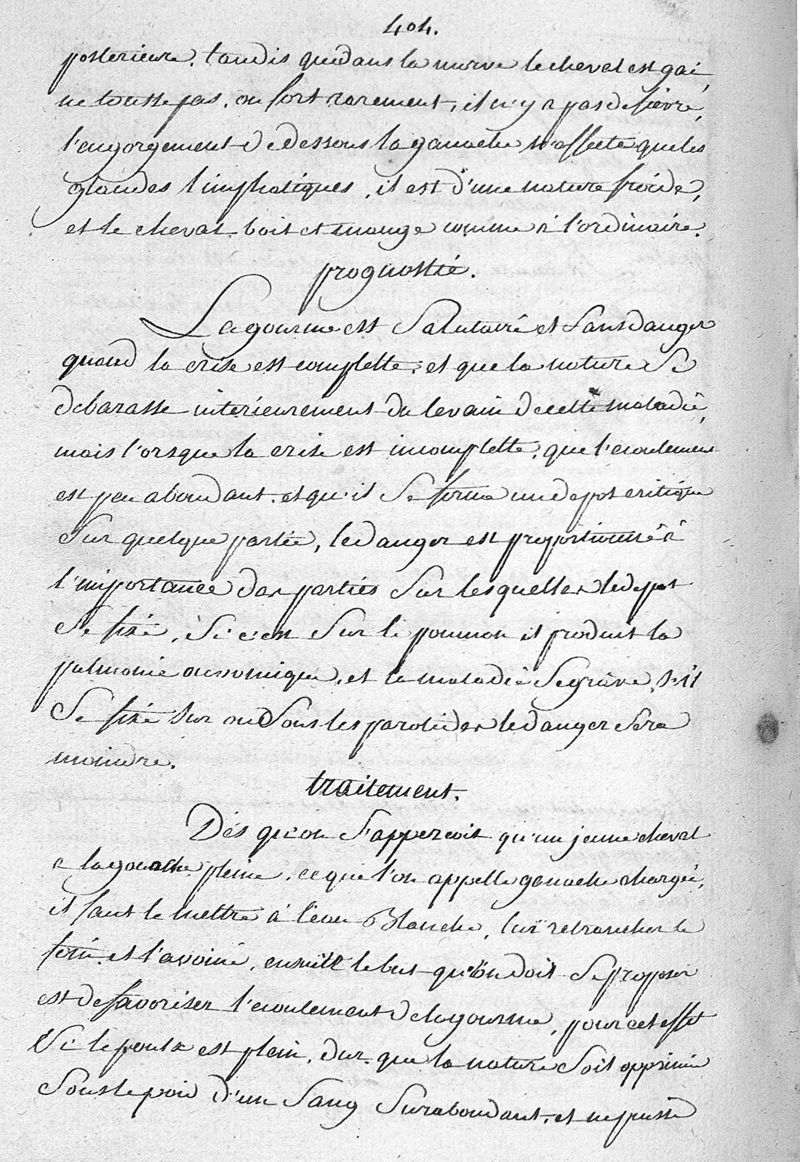 404.
posterieure. tandis que dans la morve le cheval est gai,
ne tousse pas, ou fort rarement, il n'y a pas de fievre,
l'engorgement de dessous la ganache n'affecte que les
glandes limphatiques, il est d'une nature froide,
et le cheval boit et mange comme a l'ordinaire.
prognostic.
La gourme est Salutaire et Sans danger
quand la crise est complette, et que la nature Se
debarasse interieurement du levain de cette maladie,
mais lorsque la crise est incomplette, que l'ecoulement
est peu abondant, et qu'il Se forme un depot critique
Sur quelque partie, le danger est proportionné à
l'importance des parties Sur lesquelles le depot
Se fixe, Si c'est Sur le poumon il produit la
pulmonie, et la maladie Segrave, S'il
Se fixe Sur ou Sous les parotides le danger Sera
moindre.
traitement.
Dès qu'on S'apperçoit qu'un jeune cheval
a la ganache pleine, ce que l'on appelle ganache chargée,
il faut le mettre à l'eau Blanche, lui retrancher le
foin et l'avoine, ensuitte le but qu'on doit Se proposer
est de favoriser l'ecoulement de la gourme, pour cet effet
Si le poulx est plein, dur, que la nature Soit opprimée
Sous le poid d'un Sang Surabondant, et ne puisse